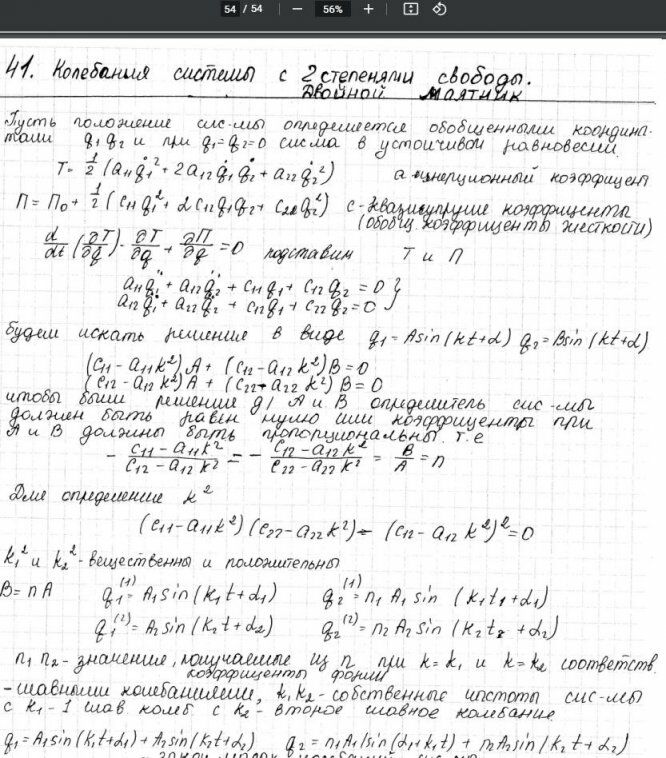 54 / 54 — 56% +
41. Колебания системы с 2 степенями свободы.
Двойной маятник
Пусть положение сис-мы определяется обобщенными координа-
тами q₁ q₂ и при q₁=q₂=0 сисма в устойчивой равновесии.
T= ½ (a₁₁q̇₁² + 2a₁₂ q̇₁ q̇₂ + a₂₂ q̇₂²) a-инерционный коэффициент
П = П₀ + ½ (c₁₁q₁² + 2c₁₂q₁q₂ + c₂₂q₂²) c-квазиупругие коэффициенты
(обобщ. коэффициенты жесткости)
d/dt (∂T/∂q̇) - ∂T/∂q + ∂П/∂q = 0 подставим T и П
a₁₁q̈₁ + a₁₂q̈₂ + c₁₁q₁ + c₁₂q₂ = 0 }
a₁₂q̈₁ + a₂₂q̈₂ + c₁₂q₁ + c₂₂q₂ = 0
будем искать решение в виде q₁ = Asin(kt+α) q₂ = Bsin(kt+α)
(c₁₁ - a₁₁k²)A + (c₁₂ - a₁₂k²)B = 0
(c₁₂ - a₁₂k²)A + (c₂₂ - a₂₂k²)B = 0
чтобы были решение д/ A и B определитель сис-мы
должен быть равен нулю или коэффициенты при
A и B должны быть пропорциональны. т.е
- (c₁₁ - a₁₁k²)/(c₁₂ - a₁₂k²) = - (c₁₂ - a₁₂k²)/(c₂₂ - a₂₂k²) = B/A = n
Для определение k²
(c₁₁ - a₁₁k²)(c₂₂ - a₂₂k²) - (c₁₂ - a₁₂k²)² = 0
k₁² и k₂² - вещественны и положительны
B = nA q₁⁽¹⁾ = A₁sin(k₁t+α₁) q₂⁽¹⁾ = n₁A₁sin(k₁t₁+α₁)
q₁⁽²⁾ = A₂sin(k₂t+α₂) q₂⁽²⁾ = n₂A₂sin(k₂t₂+α₂)
n₁ n₂ - значение, получаемые из n при k=k₁ и k=k₂ соответств.
коэффициенты формы
-главными колебаниями, k₁k₂ - собственные частоты сис-мы
с k₁ - 1 глав колеб с k₂ - второе главное колебание
q₁ = A₁sin(k₁t+α₁) + A₂sin(k₂t+α₂) q₂ = n₁A₁sin(α₁+k₁t) + n₂A₂sin(k₂t+α₂)